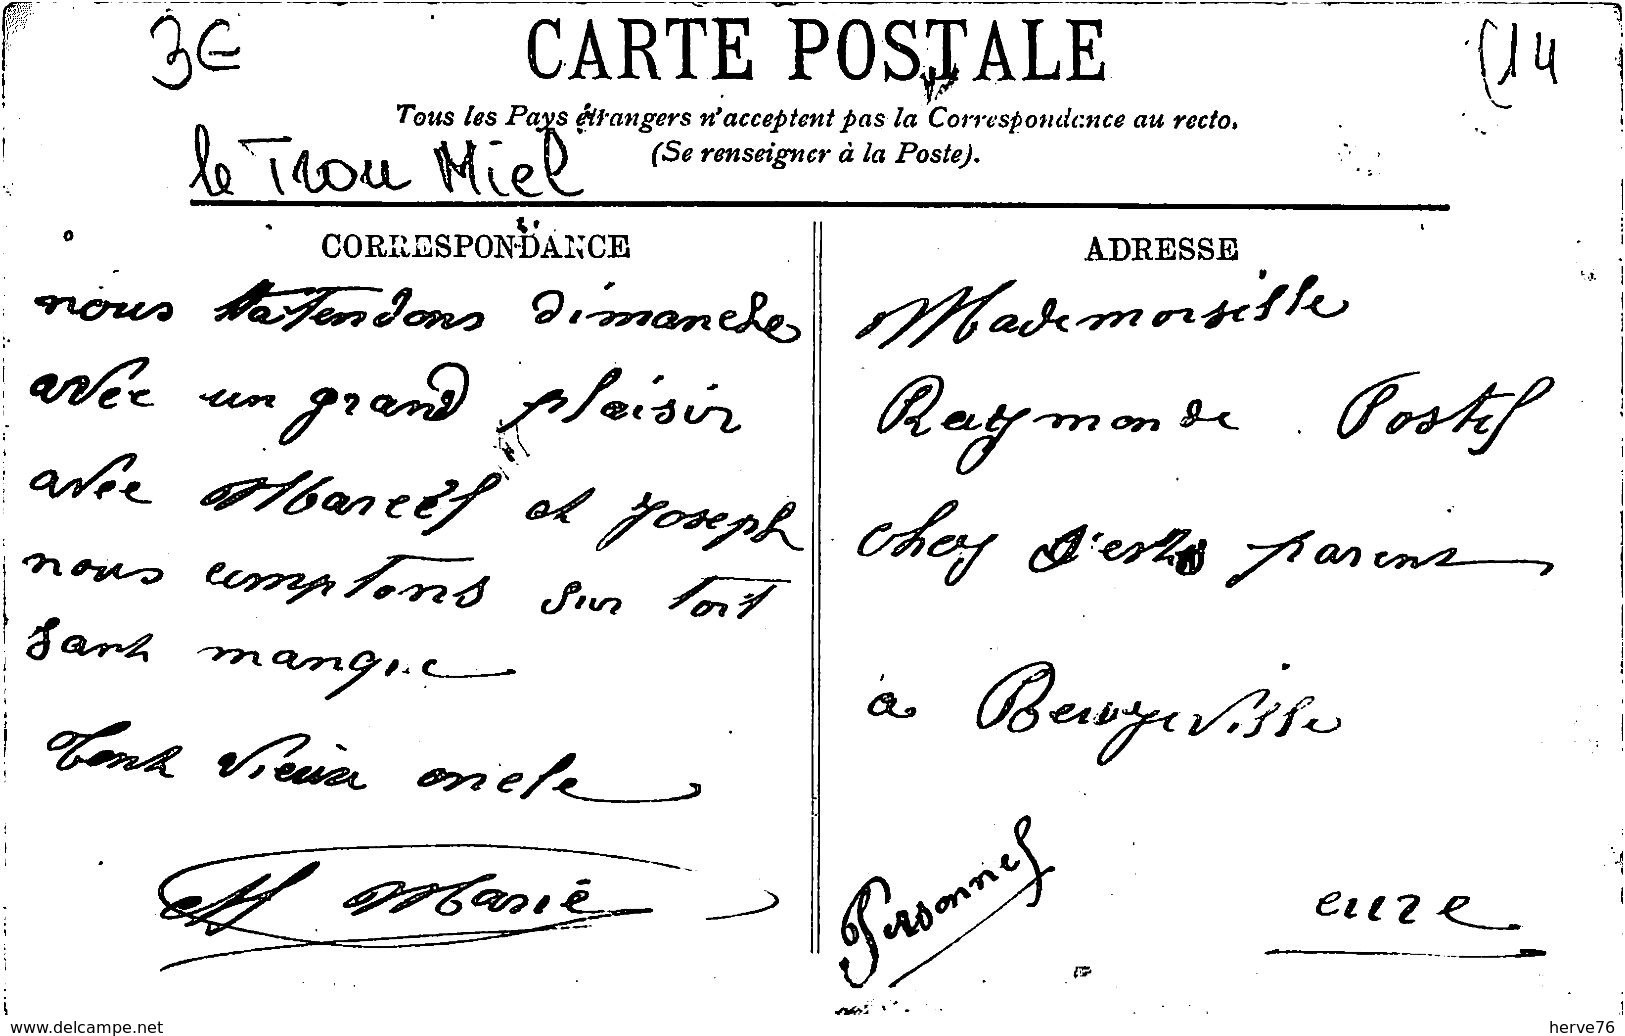 3€
CARTE POSTALE
14
Tous les Pays étrangers n'acceptent pas la Correspondance au recto.
(Se renseigner à la Poste).
le Trou Miel
CORRESPONDANCE
nous tatendons dimanche
avec un grand plaisir
avec Marcel et Joseph
nous comptons sur toit
sant manque
tont vieux oncle
Marie
ADRESSE
Mademoiselle
Raymonde Postel
chez parent
à Beuzeville
Personnel
eure
www.delcampe.net
herve76